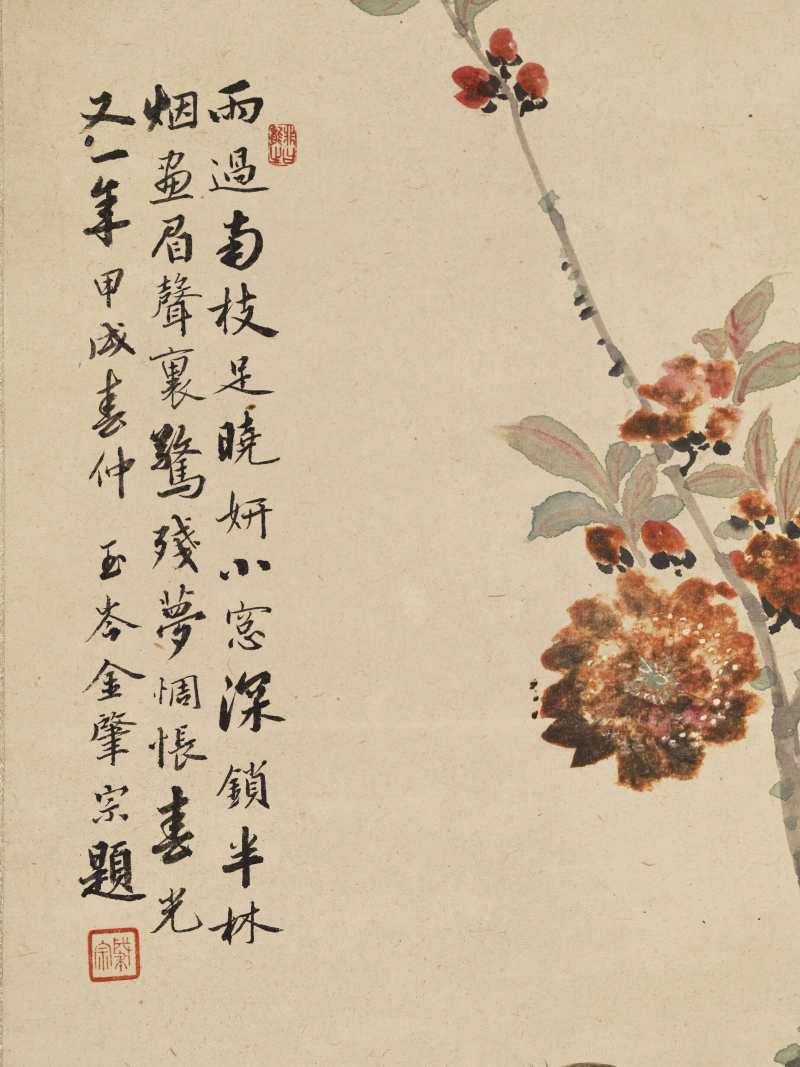 雨過南枝足曉妍小窓深鎖半林
烟畫眉聲裏驚殘夢惆悵春光
又一年甲戌春仲玉岑金肇宗題
肇宗